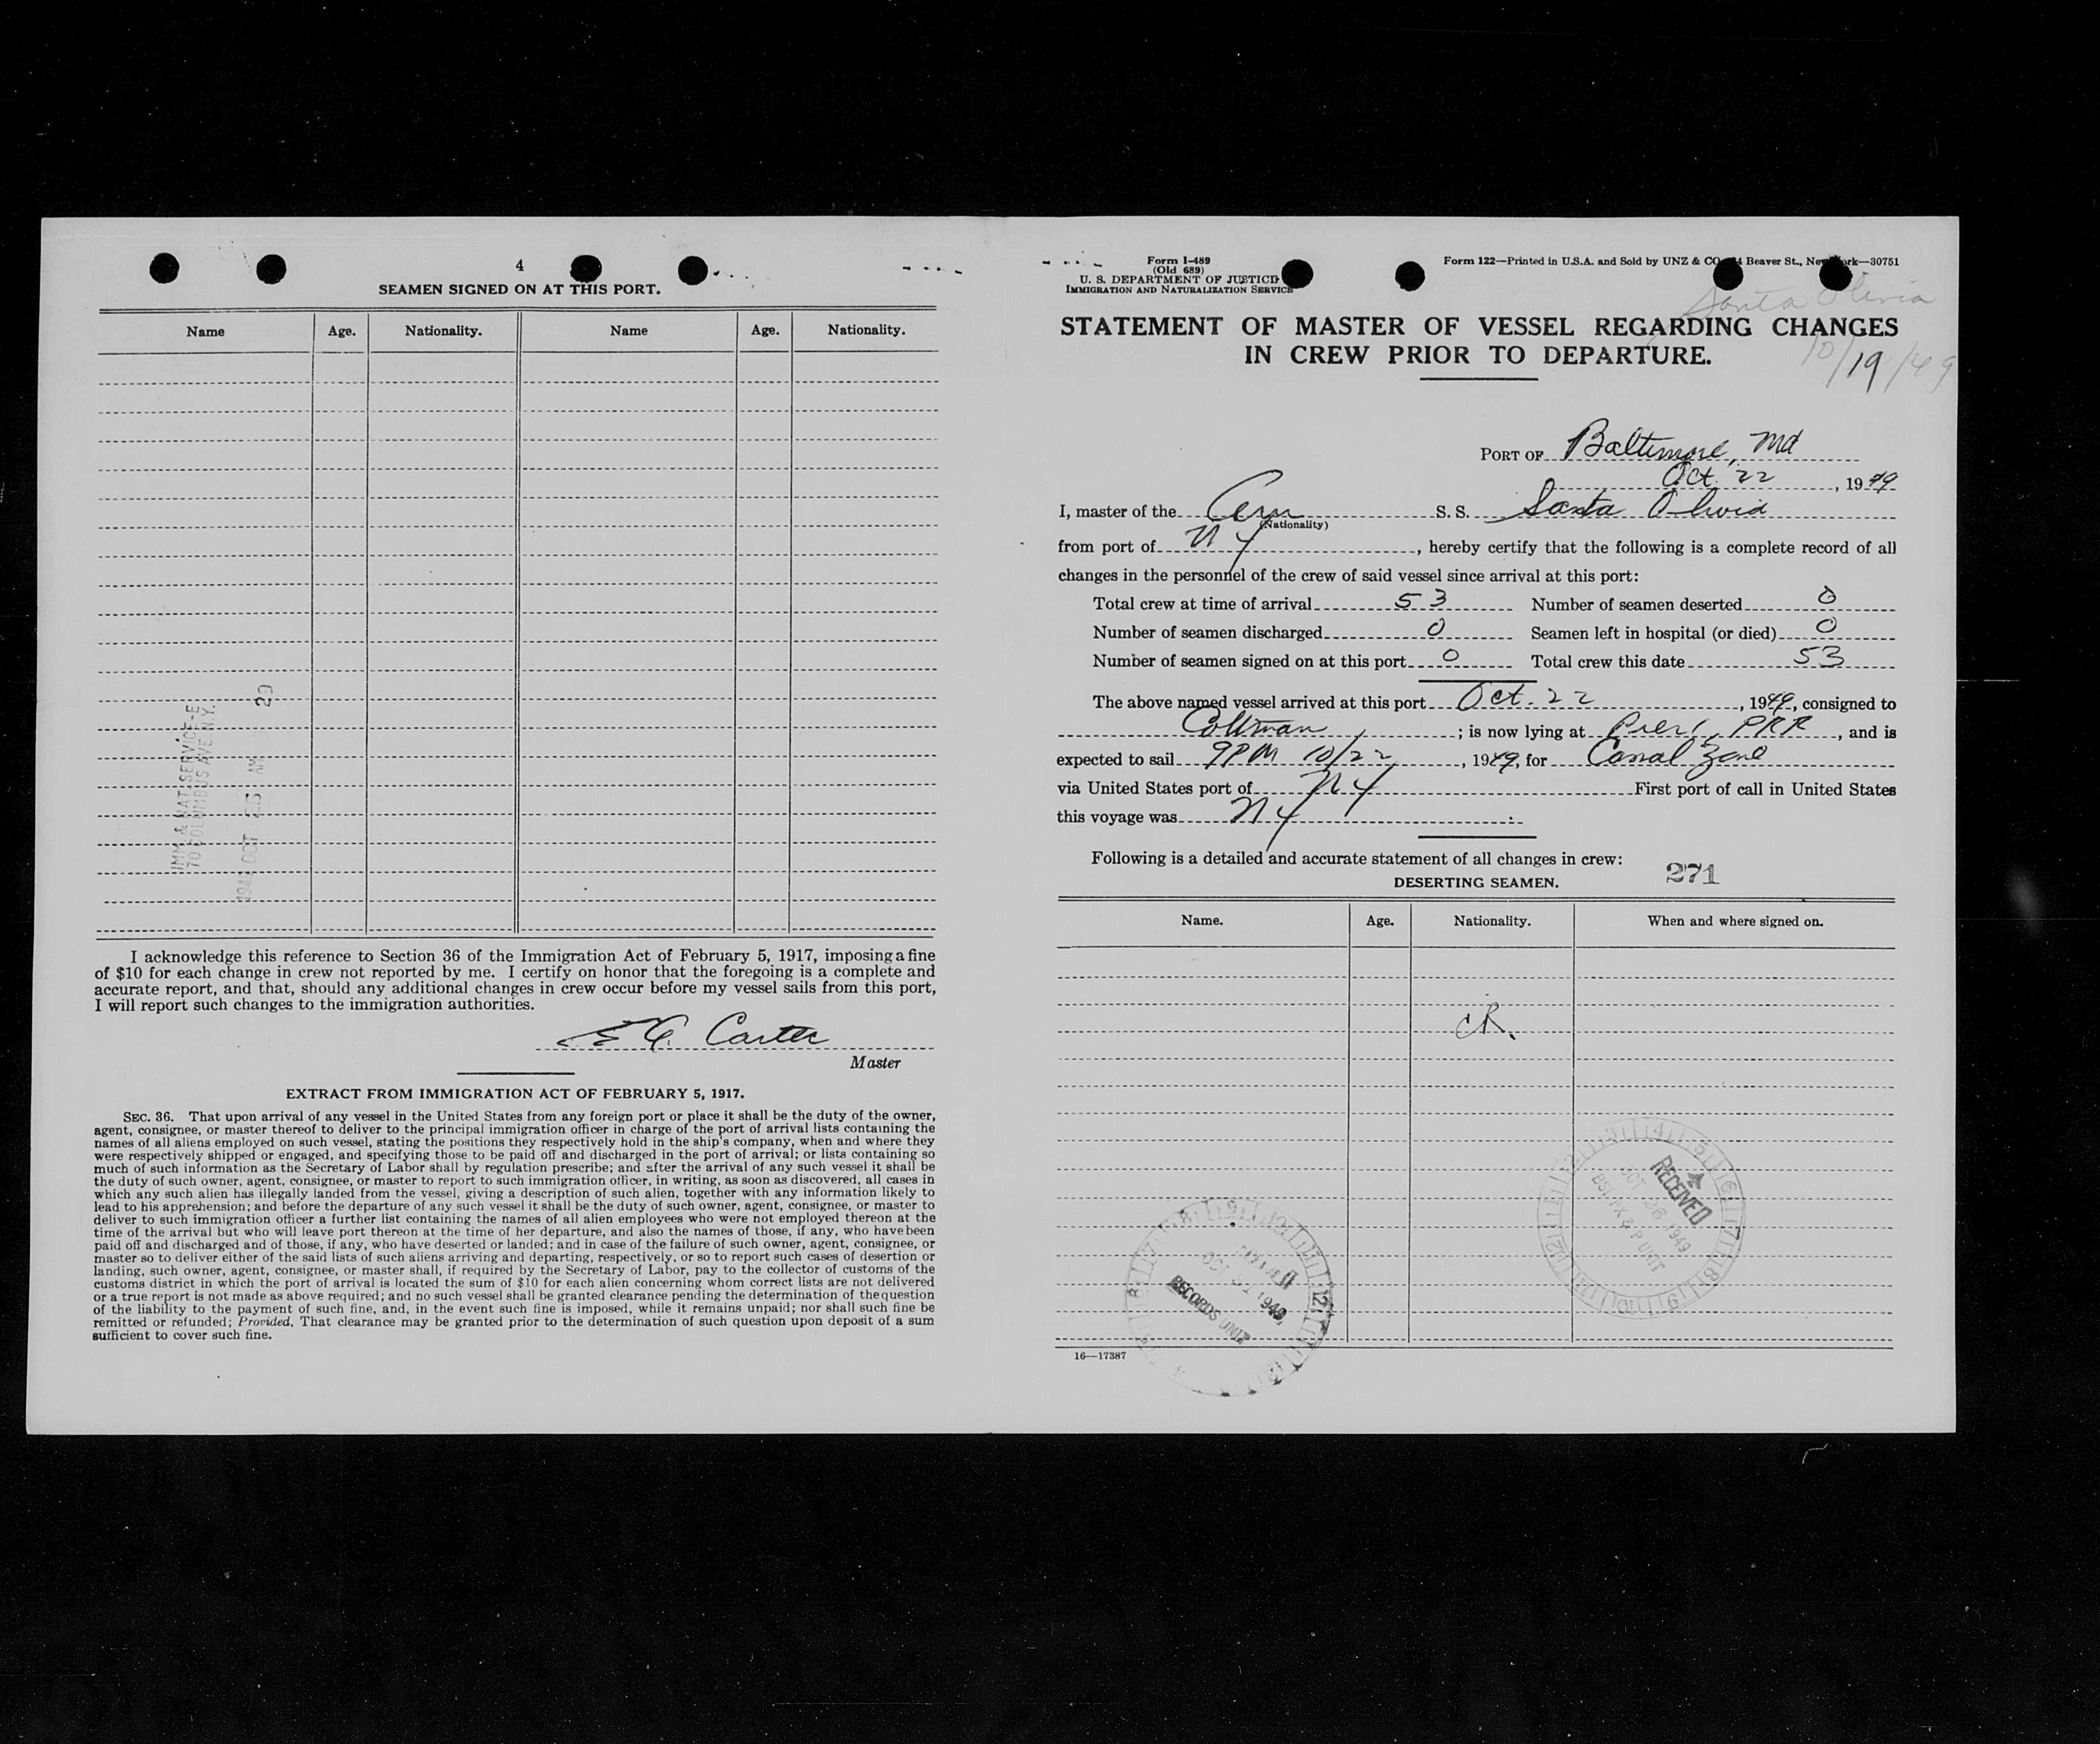 4
SEAMEN SIGNED ON AT THIS PORT.
Name Age. Nationality. Name Age. Nationality.
IMM & NAT SERVICE-E
70 COLUMBUS AVE N.Y.
OCT 25 AM 29
I acknowledge this reference to Section 36 of the Immigration Act of February 5, 1917, imposing a fine
of $10 for each change in crew not reported by me. I certify on honor that the foregoing is a complete and
accurate report, and that, should any additional changes in crew occur before my vessel sails from this port,
I will report such changes to the immigration authorities.
Carter
Master
EXTRACT FROM IMMIGRATION ACT OF FEBRUARY 5, 1917.
SEC. 36. That upon arrival of any vessel in the United States from any foreign port or place it shall be the duty of the owner,
agent, consignee, or master thereof to deliver to the principal immigration officer in charge of the port of arrival lists containing the
names of all aliens employed on such vessel, stating the positions they respectively hold in the ship's company, when and where they
were respectively shipped or engaged, and specifying those to be paid off and discharged in the port of arrival; or lists containing so
much of such information as the Secretary of Labor shall by regulation prescribe; and after the arrival of any such vessel it shall be
the duty of such owner, agent, consignee, or master to report to such immigration officer, in writing, as soon as discovered, all cases in
which any such alien has illegally landed from the vessel, giving a description of such alien, together with any information likely to
lead to his apprehension; and before the departure of any such vessel it shall be the duty of such owner, agent, consignee, or master to
deliver to such immigration officer a further list containing the names of all alien employees who were not employed thereon at the
time of the arrival but who will leave port thereon at the time of her departure, and also the names of those, if any, who have been
paid off and discharged and of those, if any, who have deserted or landed; and in case of the failure of such owner, agent, consignee, or
master so to deliver either of the said lists of such aliens arriving and departing, respectively, or so to report such cases of desertion or
landing, such owner, agent, consignee, or master shall, if required by the Secretary of Labor, pay to the collector of customs of the
customs district in which the port of arrival is located the sum of $10 for each alien concerning whom correct lists are not delivered
or a true report is not made as above required; and no such vessel shall be granted clearance pending the determination of the question
of the liability to the payment of such fine, and, in the event such fine is imposed, while it remains unpaid; nor shall such fine be
remitted or refunded; Provided, That clearance may be granted prior to the determination of such question upon deposit of a sum
sufficient to cover such fine.
Form I-489
(Old 689)
U. S. DEPARTMENT OF JUSTICE
IMMIGRATION AND NATURALIZATION SERVICE
Form 122—Printed in U.S.A. and Sold by UNZ & CO. Beaver St., New York—30751
Santa Olivia
10/19/49
STATEMENT OF MASTER OF VESSEL REGARDING CHANGES
IN CREW PRIOR TO DEPARTURE.
PORT OF Baltimore, Md
Oct 22, 1949
I, master of the Am S. S. Santa Olivia
(Nationality)
from port of N Y, hereby certify that the following is a complete record of all
changes in the personnel of the crew of said vessel since arrival at this port:
Total crew at time of arrival 53 Number of seamen deserted 0
Number of seamen discharged 0 Seamen left in hospital (or died) 0
Number of seamen signed on at this port 0 Total crew this date 53
The above named vessel arrived at this port Oct. 22, 1949, consigned to
Coltman; is now lying at Pier 1, PRR, and is
expected to sail 9PM 10/22, 1949, for Canal Zone
via United States port of N Y First port of call in United States
this voyage was N Y.
Following is a detailed and accurate statement of all changes in crew:
271
DESERTING SEAMEN.
Name. Age. Nationality. When and where signed on.
CR.
RECEIVED
OCT 26 1949
P UNIT
OCT 1949
RECORDS UNIT
16—17387